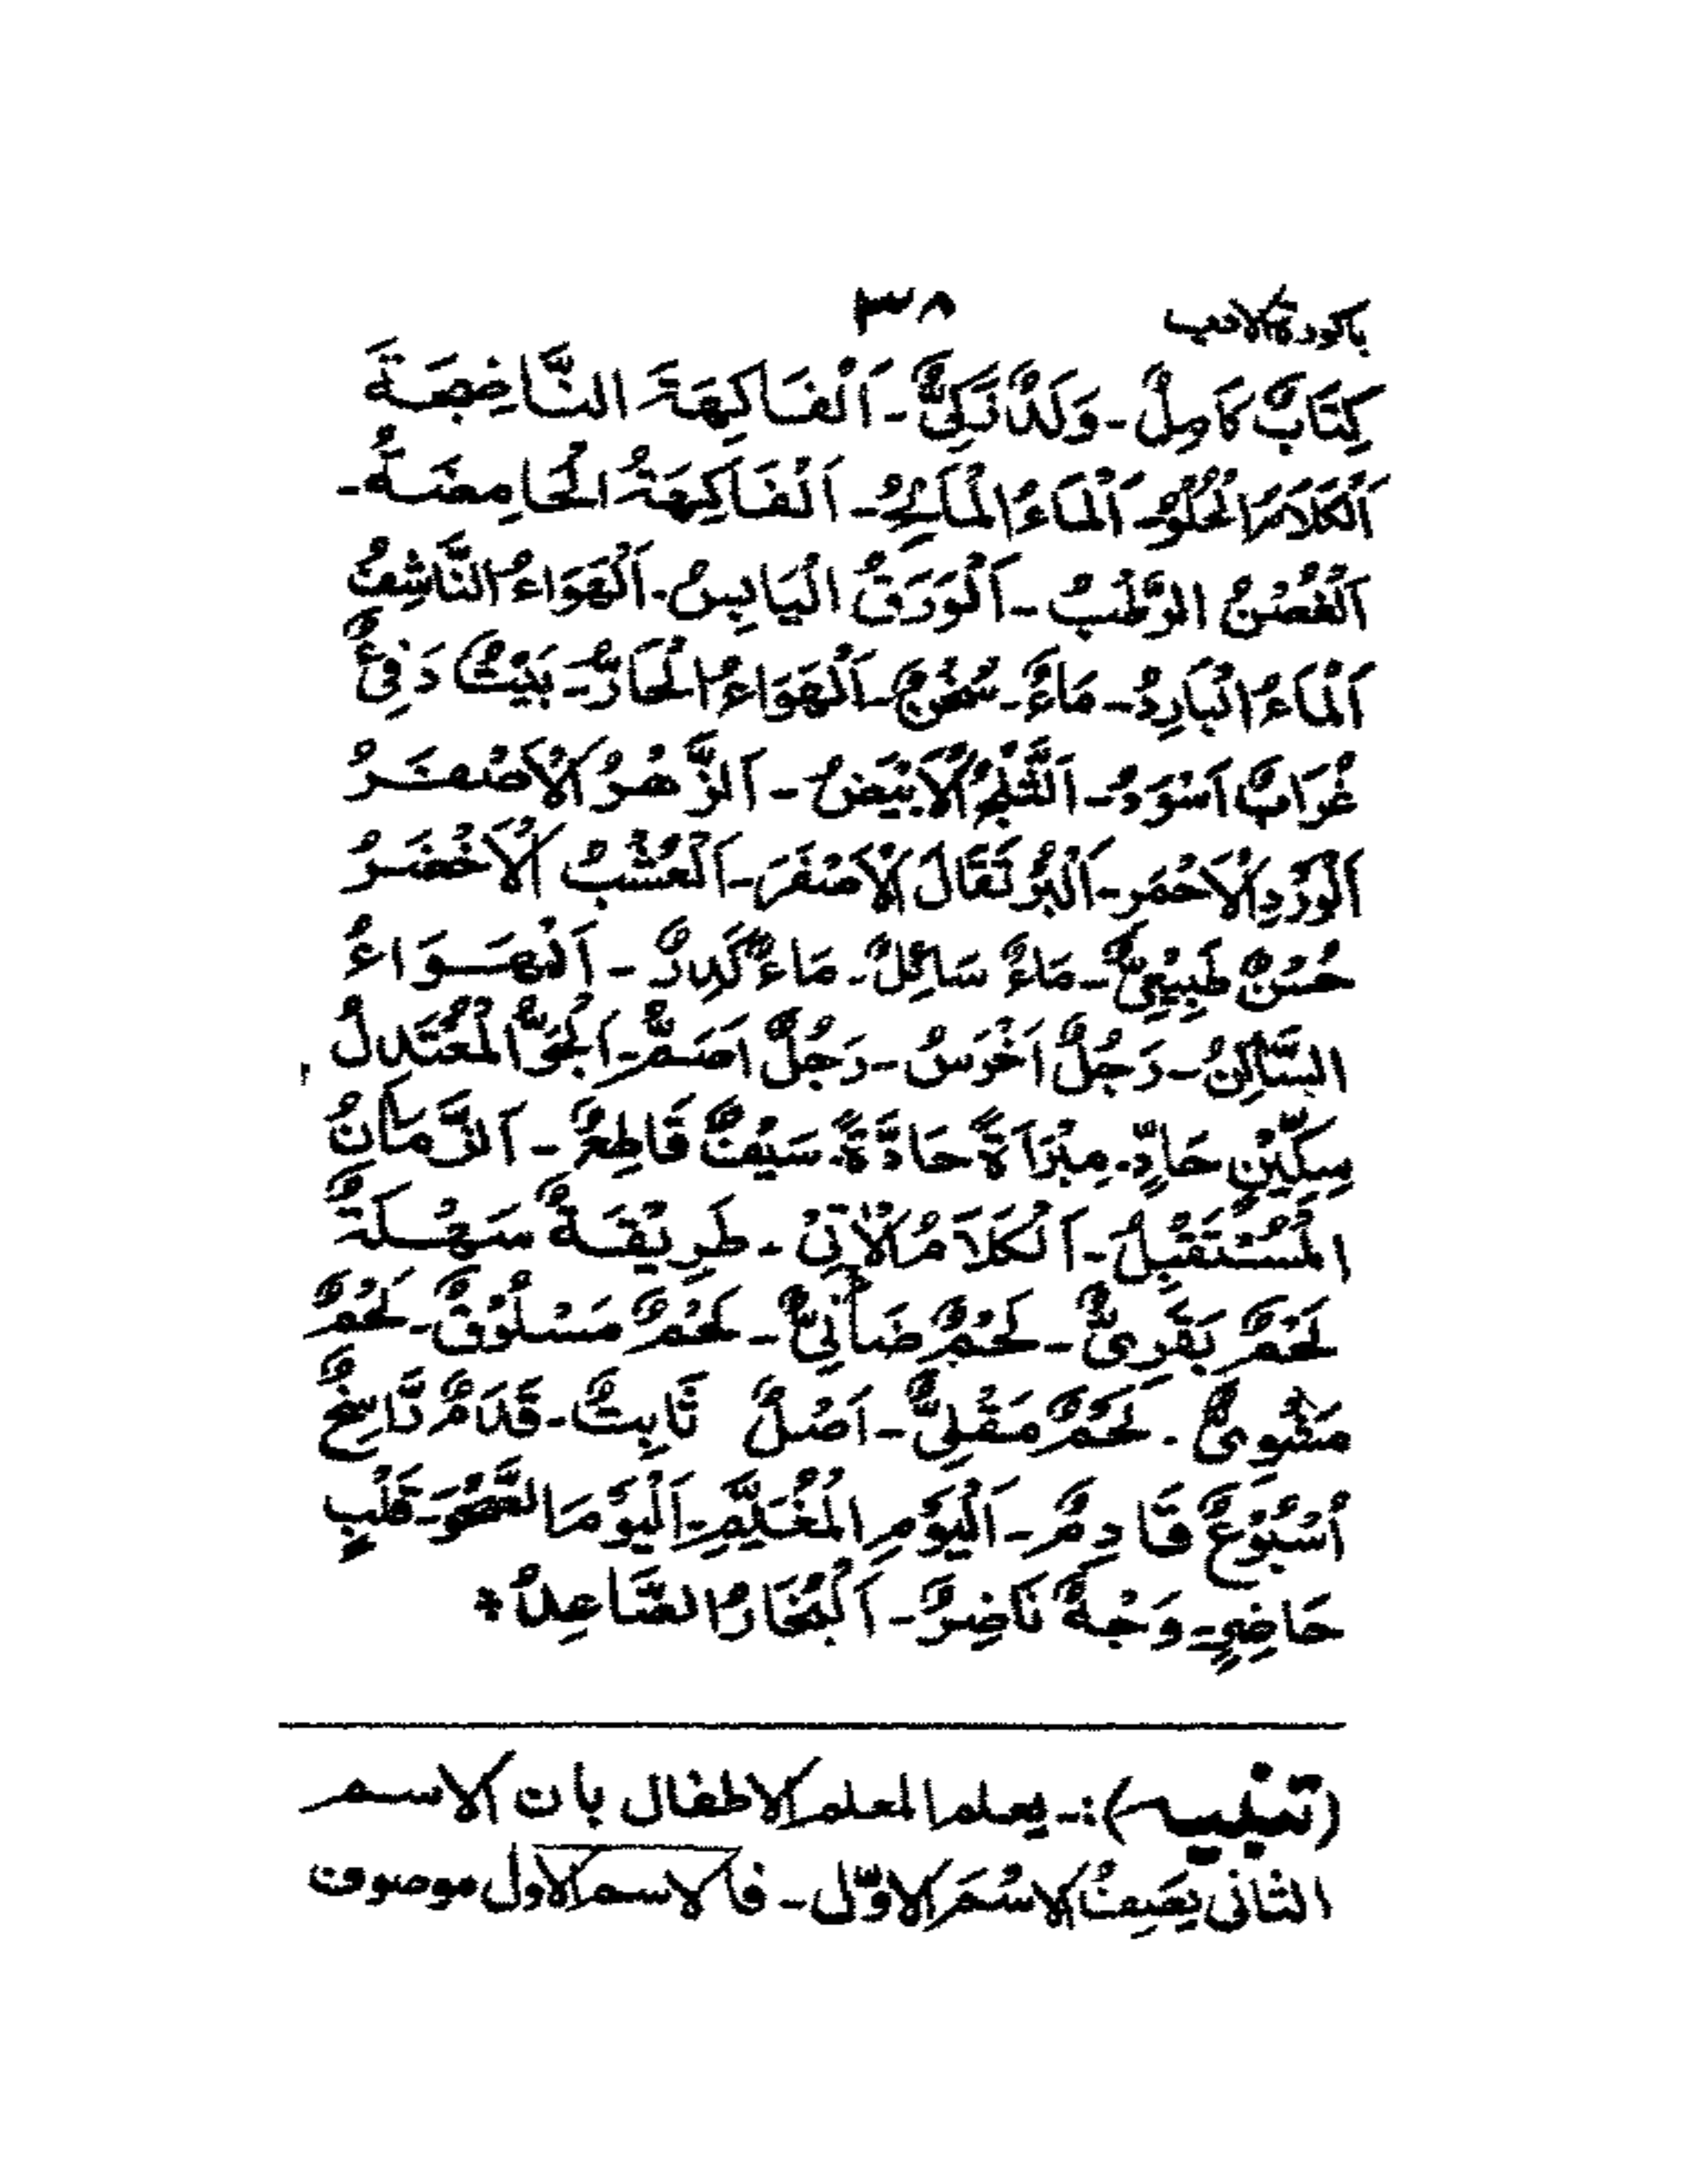 باكورة الادب ٣٨
كِتَابٌ كَامِلٌ - وَلَدٌ ذَكِيٌّ - اَلْفَاكِهَةَ النَّاضِجَةَ
اَلْكَلَامُ الْحُلْوُ - اَلْمَاءُ الْمَالِحُ - اَلْفَاكِهَةُ الْحَامِضَةُ -
اَلْغُصْنُ الرَّطْبُ - اَلْوَرَقُ الْيَابِسُ - اَلْهَوَاءُ النَّاشِفُ
اَلْمَاءُ الْبَارِدُ - مَاءٌ - سُخْنٌ - اَلْهَوَاءُ الْحَارُّ - بَيْتٌ دَفِیْءٌ
غُرَابٌ اَسْوَدُ - اَلثَّلْجُ الْاَبْيَضُ - اَلزَّهْرُ الْاَصْفَرُ
اَلْوَرْدِ الْاَحْمَرِ - اَلْبُرْتَقَالَ الْاَصْفَرَ - اَلْعُشْبُ الْاَخْضَرُ
حُسْنٌ طَبِيْعِیٌّ - مَاءٌ سَائِلٌ - مَاءٌ كَدِرٌ - اَلْهَوَاءُ
السَّاكِنُ - رَجُلٌ اَخْرَسُ - رَجُلٌ اَصَمُّ - اَلْجَوُّ الْمُعْتَدِلُ
سِكِّيْنٍ حَادٍّ - مِبْرَاةً حَادَّةً - سَيْفٌ قَاطِعٌ - اَلزَّمَانُ
الْمُسْتَقْبِلُ - اَلْكَلَامُ الْاٰتِیْ - طَرِيْقَةٌ سَهْلَةٌ
لَحْمٌ بَقَرِیٌّ - لَحْمٌ ضَأْنِیٌّ - لَحْمٌ مَسْلُوْقٌ - لَحْمٌ
مَشْوِیٌّ - لَحْمٌ مَقْلِیٌّ - اَصْلٌ ثَابِتٌ - قَدَمٌ رَاسِخٌ
اُسْبُوْعٌ قَادِمٌ - اَلْيَوْمِ الْمُغَيِّمِ - اَلْيَوْمَ الصَّحْوَ - قَلْبٍ
حَاضِرٍ - وَجْهٌ نَاضِرٌ - اَلْبُخَارُ الصَّاعِدُ *
(تنبيه) :- يعلم المعلم الاطفال بان الاسم
الثانى يَصِفُ الاسْمَ الاوّل - فالاسم الاول موصوف